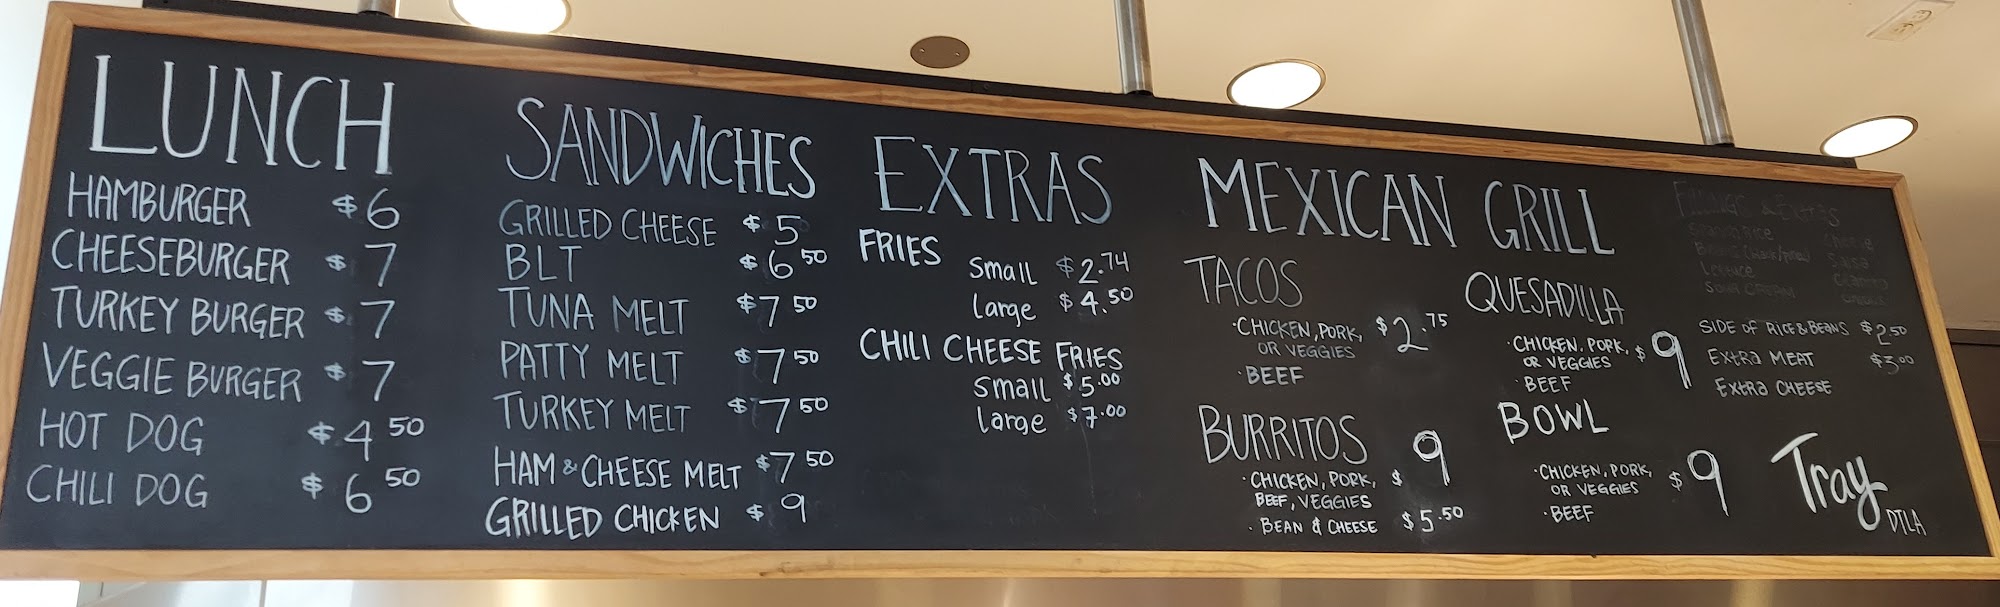 LUNCH
HAMBURGER $6
CHEESEBURGER $7
TURKEY BURGER $7
VEGGIE BURGER $7
HOT DOG $4 50
CHILI DOG $6 50
SANDWICHES
GRILLED CHEESE $5
BLT $6 50
TUNA MELT $7 50
PATTY MELT $7 50
TURKEY MELT $7 50
HAM & CHEESE MELT $7 50
GRILLED CHICKEN $9
EXTRAS
FRIES
small $2.74
large $4.50
CHILI CHEESE FRIES
small $5.00
large $7.00
MEXICAN GRILL
TACOS
·CHICKEN, PORK, $2.75
OR VEGGIES
·BEEF
BURRITOS
·CHICKEN, PORK, $9
BEEF, VEGGIES
·BEAN & CHEESE $5.50
QUESADILLA
·CHICKEN, PORK, $9
OR VEGGIES
·BEEF
BOWL
·CHICKEN, PORK, $9
OR VEGGIES
·BEEF
FILLINGS & EXTRAS
SPANISH RICE
LETTUCE
SOUR CREAM
SALSA
SIDE OF RICE & BEANS $2 50
EXTRA MEAT $3.00
EXTRA CHEESE
Tray
DTLA